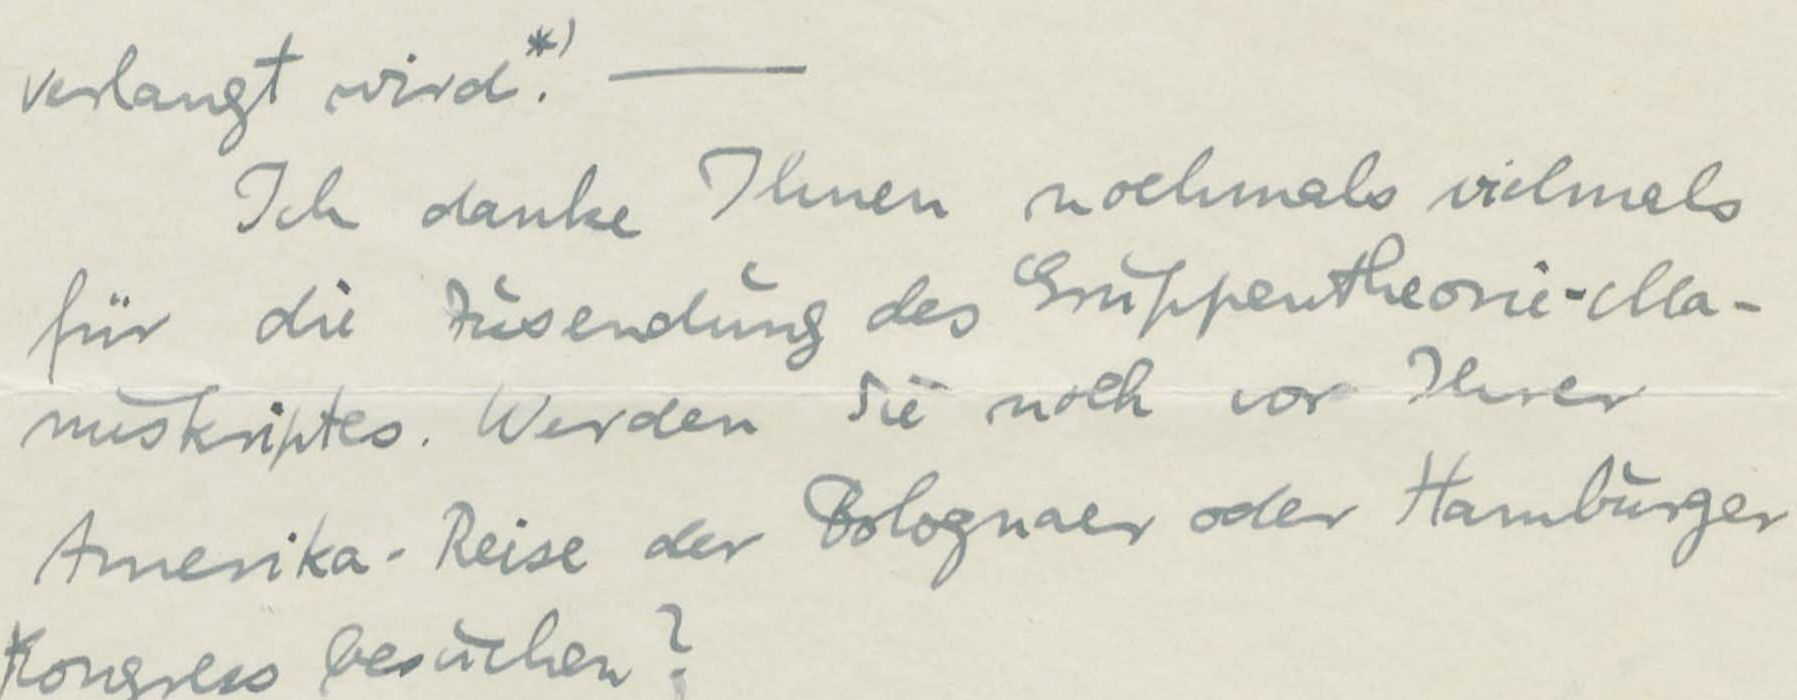 verlangt wird.*) —
Ich danke Ihnen nochmals vielmals
für die Zusendung des Gruppentheorie-Ma-
nuskriptes. Werden Sie noch vor Ihrer
Amerika-Reise der Bolognaer oder Hamburger
Kongress besuchen?